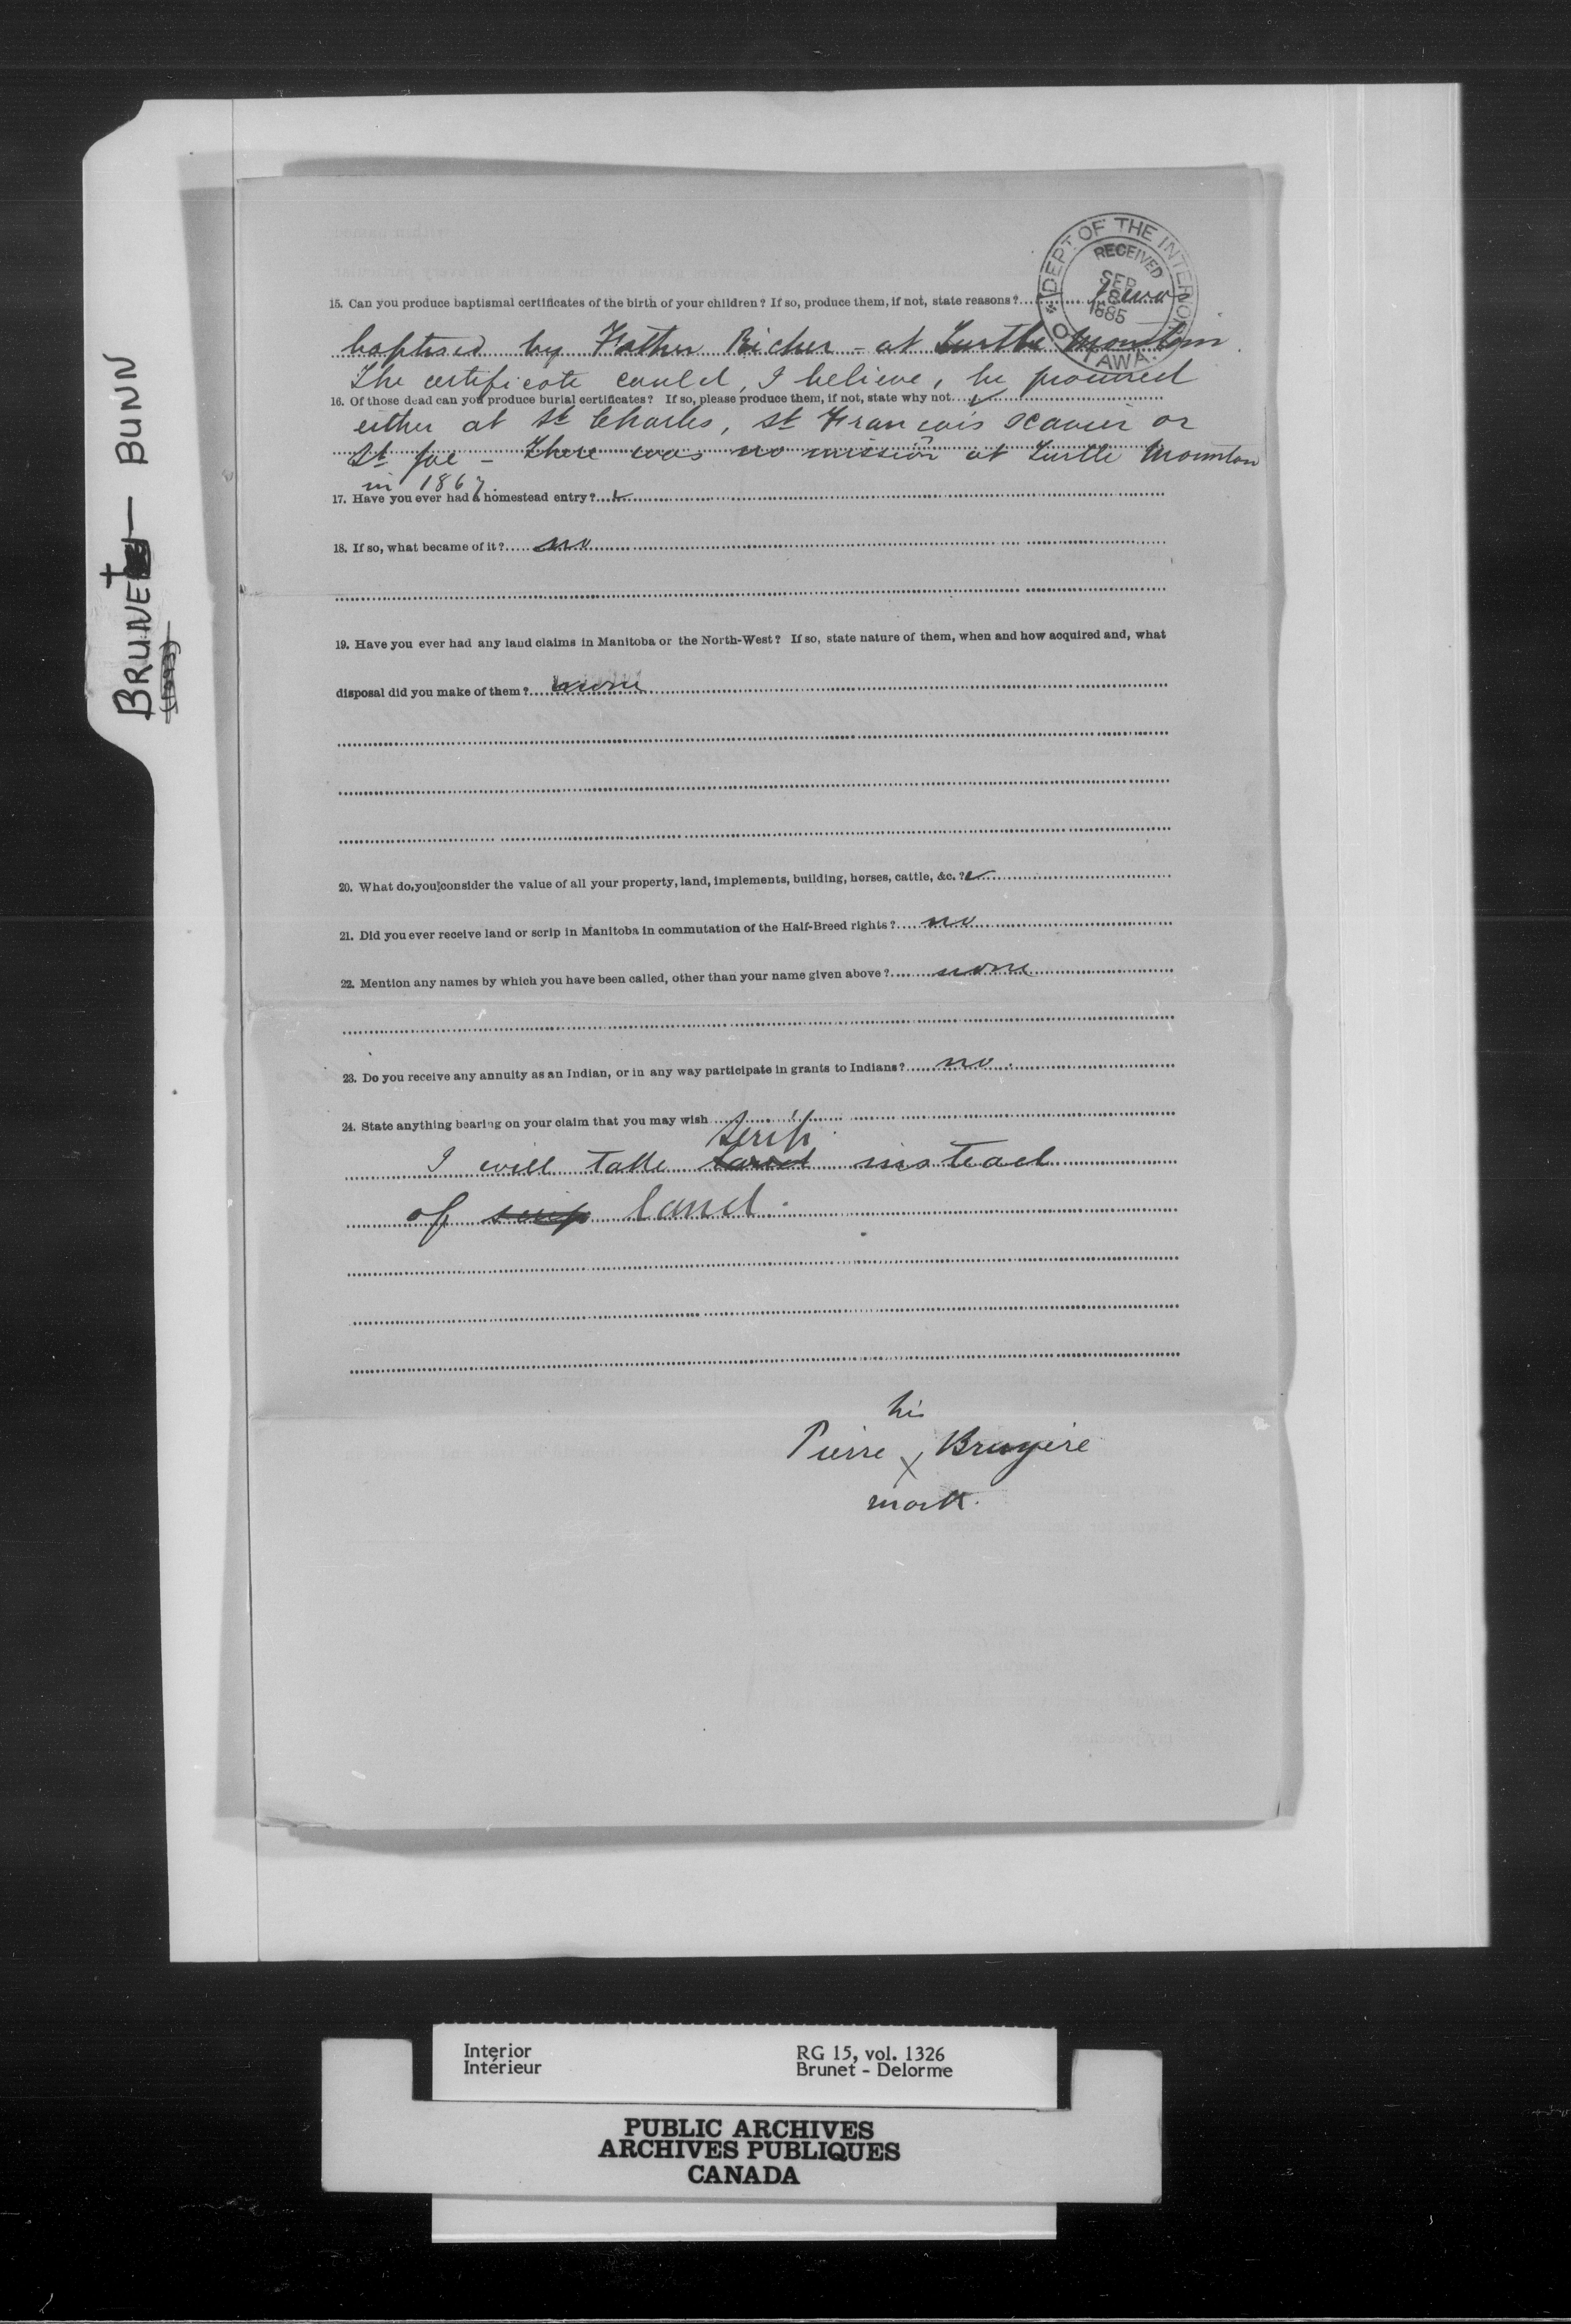 BRUNET — BUNN
DEPT OF THE INTERIOR
RECEIVED
SEP
1885
OTTAWA.
15. Can you produce baptismal certificates of the birth of your children? If so, produce them, if not, state reasons? I was
baptised by Father Richer - at Turtle Mountain.
The certificate could, I believe, be procured
16. Of those dead can you produce burial certificates? If so, please produce them, if not, state why not
either at St Charles, St François Xavier or
St Joe - There was no mission at Turtle Mountain
in 1867.
17. Have you ever had a homestead entry?
18. If so, what became of it? no
19. Have you ever had any land claims in Manitoba or the North-West? If so, state nature of them, when and how acquired and, what
disposal did you make of them? none
20. What do you consider the value of all your property, land, implements, building, horses, cattle, &c.?
21. Did you ever receive land or scrip in Manitoba in commutation of the Half-Breed rights? no
22. Mention any names by which you have been called, other than your name given above? none
23. Do you receive any annuity as an Indian, or in any way participate in grants to Indians? no.
24. State anything bearing on your claim that you may wish
scrip
I will take land instead
of scrip land.
his
Pierre X Bruyere
mark.
Interior
Intérieur
RG 15, vol. 1326
Brunet - Delorme
PUBLIC ARCHIVES
ARCHIVES PUBLIQUES
CANADA